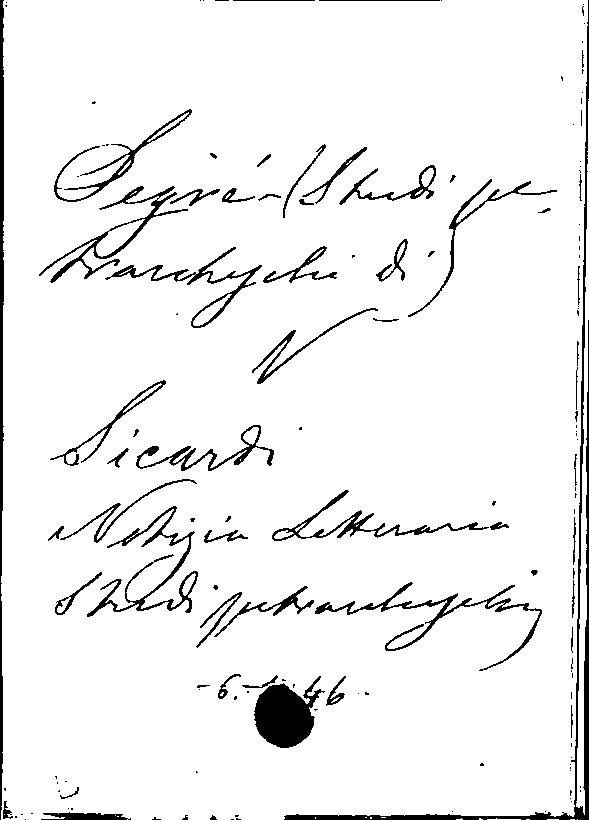 Segré - (Studi pe-
trarcheschi di)
V
Sicardi
Notizia Letteraria
Studi petrarcheschi
-6. 46.